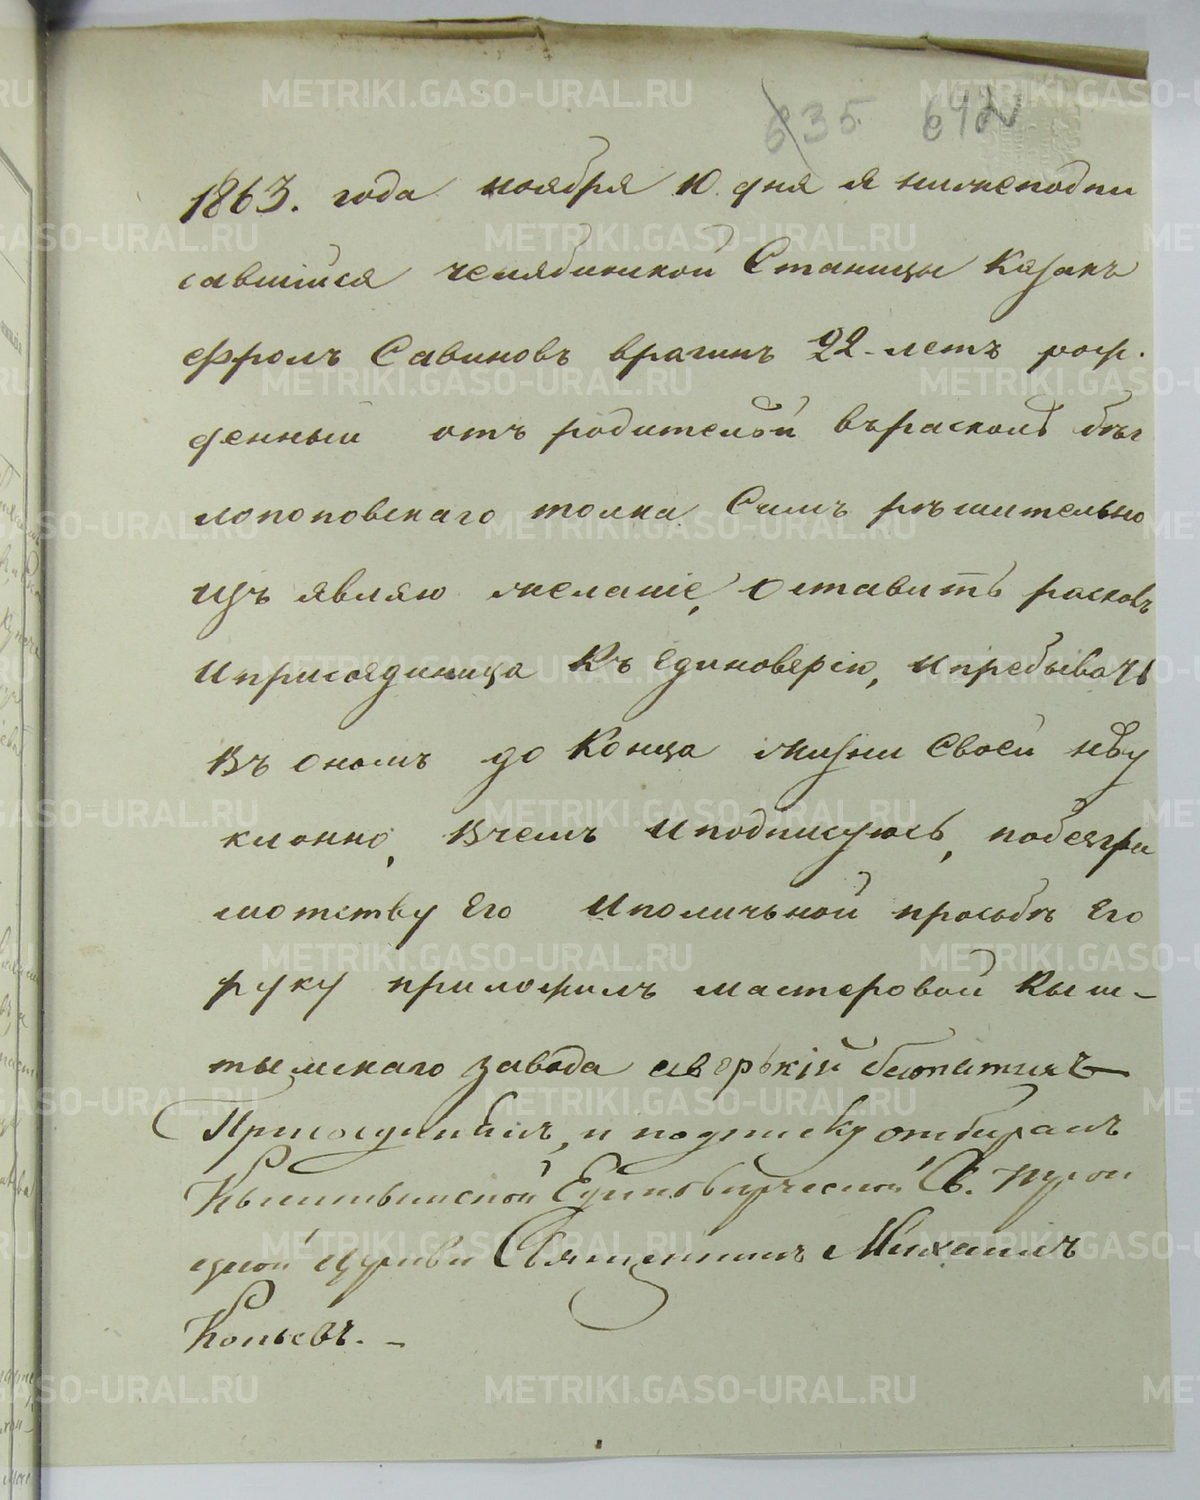 635. 692
1863. года ноября 10. дня я нижеподпи
савшийся челябинской Станицы Казакъ
Фролъ Савиновъ 22-летъ рож.
денный отъ родителей върасколѣ бѣг
лопоповскаго толка Симъ рѣшительно
изъ являю желаніе, Оставить расколъ
Иприсоединица Къ Единоверію, Ипребывать
Въ Ономъ до Конца жизни Своей неу
клонно, Вчемъ Иподписуюсь, побезгра
мотству Его Иполичьной прозьбѣ Его
руку приложилъ мастеровой Кыш-
тымскаго завода аверькій
Присоединилъ, и подписку отбиралъ
Кыштымской Единовѣрческой Св. Трои
цкой Церкви Священникъ Михаилъ
Копьевъ. -